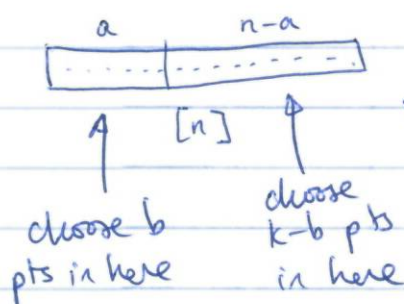 a n-a
[n]
choose b
pts in here
choose
k-b pts
in here